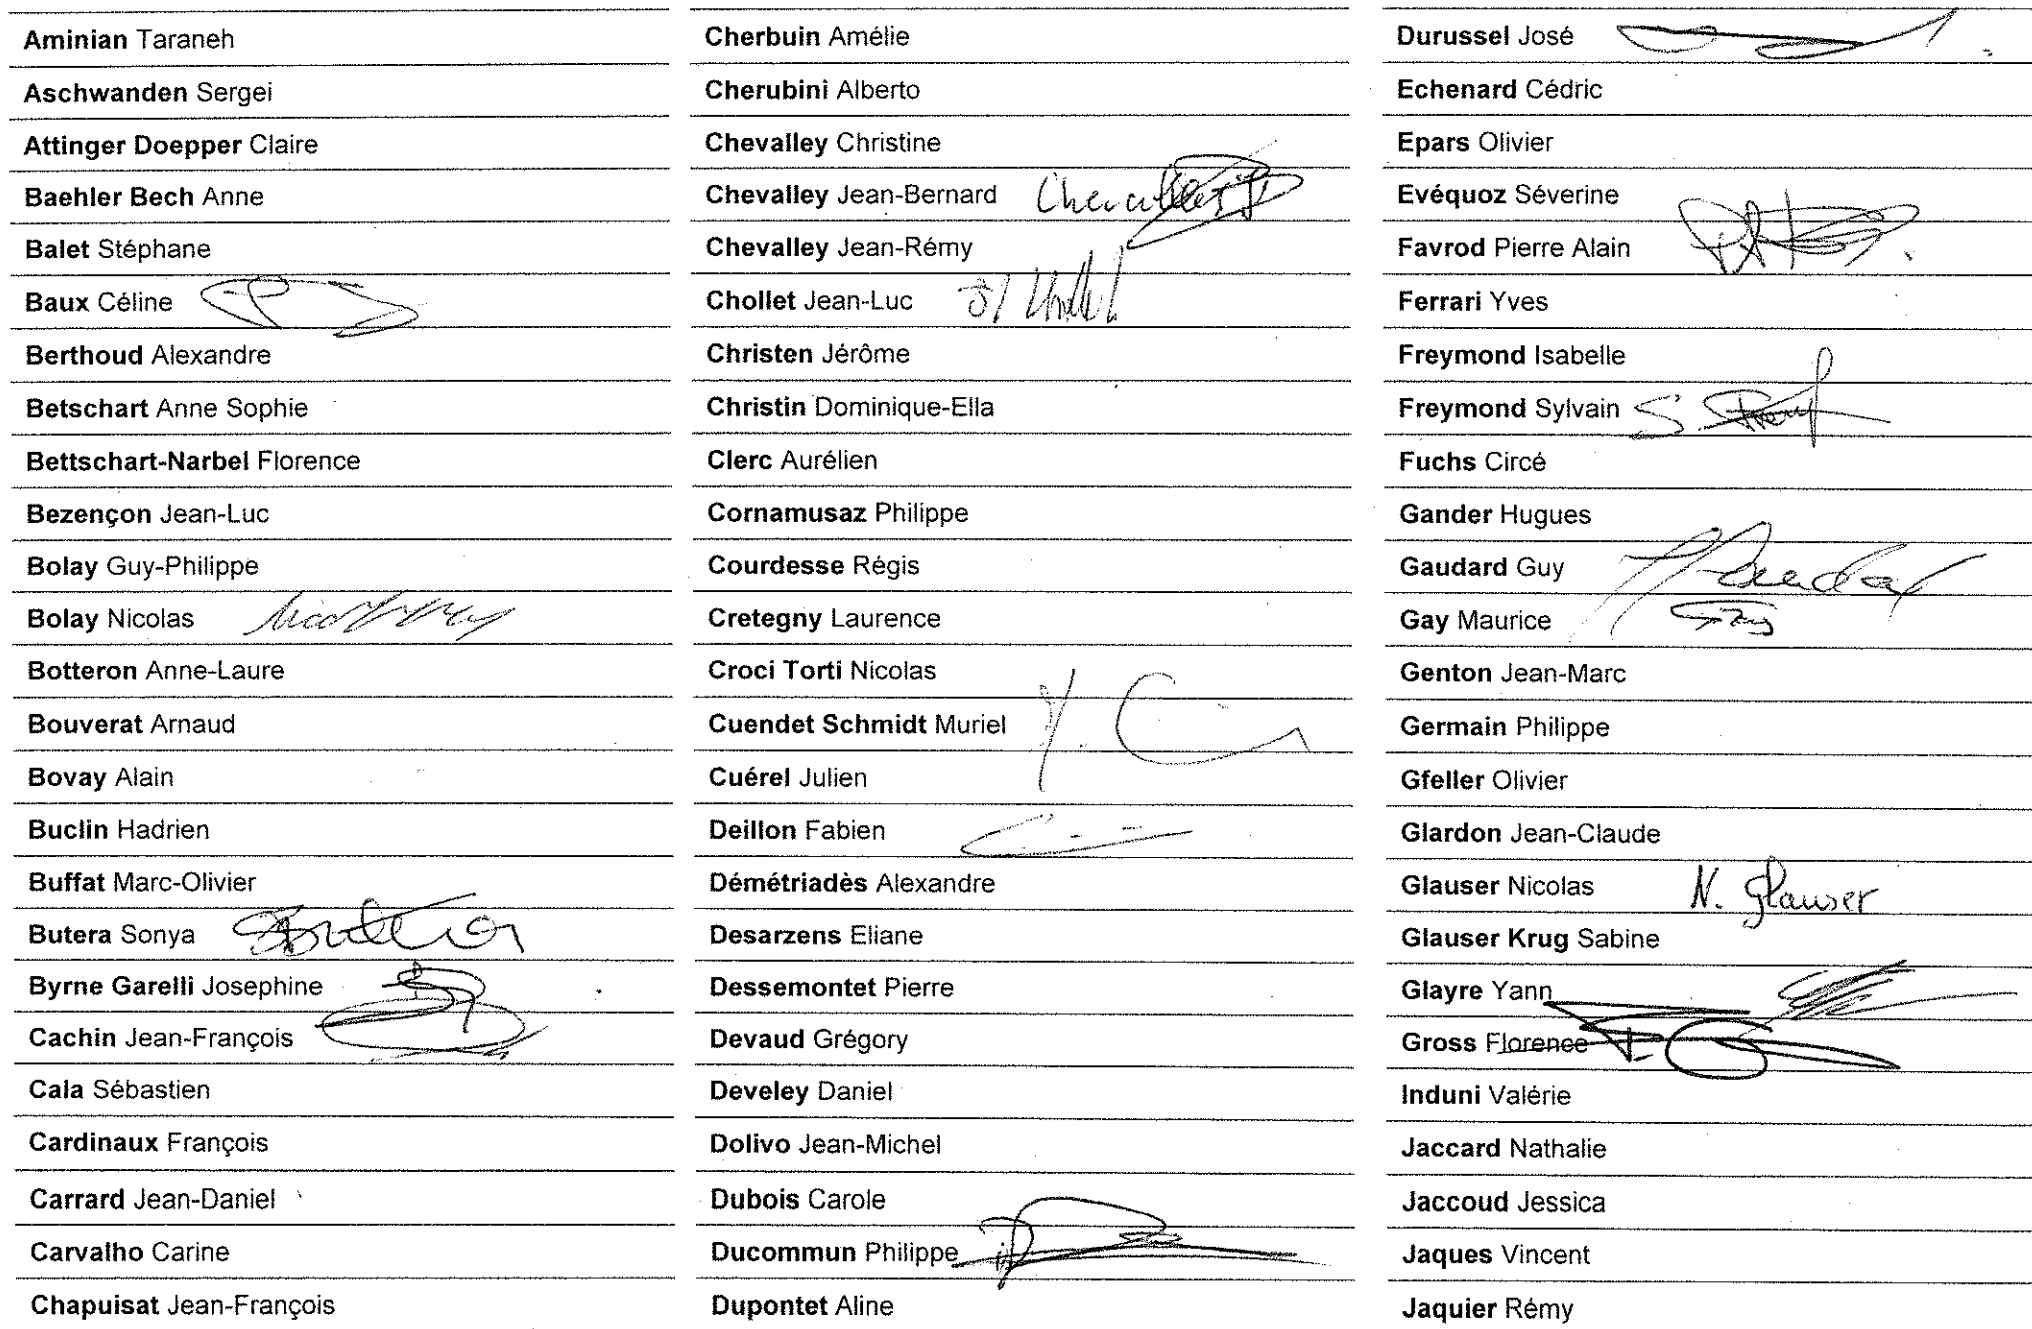 Aminian Taraneh
Aschwanden Sergei
Attinger Doepper Claire
Baehler Bech Anne
Balet Stéphane
Baux Céline
Berthoud Alexandre
Betschart Anne Sophie
Bettschart-Narbel Florence
Bezençon Jean-Luc
Bolay Guy-Philippe
Bolay Nicolas
Botteron Anne-Laure
Bouverat Arnaud
Bovay Alain
Buclin Hadrien
Buffat Marc-Olivier
Butera Sonya SButera
Byrne Garelli Josephine
Cachin Jean-François
Cala Sébastien
Cardinaux François
Carrard Jean-Daniel
Carvalho Carine
Chapuisat Jean-François
Cherbuin Amélie
Cherubini Alberto
Chevalley Christine
Chevalley Jean-Bernard Chevalley
Chevalley Jean-Rémy
Chollet Jean-Luc
Christen Jérôme
Christin Dominique-Ella
Clerc Aurélien
Cornamusaz Philippe
Courdesse Régis
Cretegny Laurence
Croci Torti Nicolas
Cuendet Schmidt Muriel
Cuérel Julien
Deillon Fabien
Démétriadès Alexandre
Desarzens Eliane
Dessemontet Pierre
Devaud Grégory
Develey Daniel
Dolivo Jean-Michel
Dubois Carole
Ducommun Philippe
Dupontet Aline
Durussel José
Echenard Cédric
Epars Olivier
Evéquoz Séverine
Favrod Pierre Alain
Ferrari Yves
Freymond Isabelle
Freymond Sylvain
Fuchs Circé
Gander Hugues
Gaudard Guy
Gay Maurice
Genton Jean-Marc
Germain Philippe
Gfeller Olivier
Glardon Jean-Claude
Glauser Nicolas N. Glauser
Glauser Krug Sabine
Glayre Yann
Gross Florence
Induni Valérie
Jaccard Nathalie
Jaccoud Jessica
Jaques Vincent
Jaquier Rémy